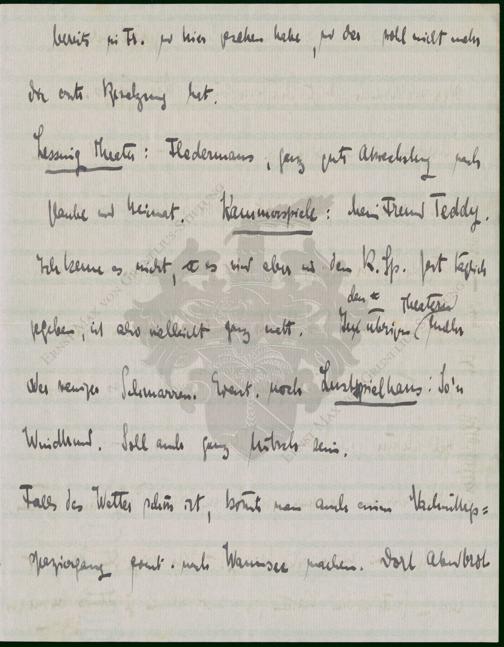 bereits in Fr. zu hier gesehen habe, zu der wohl nicht mehr
die erste Besetzung hat.
Lessing Theater: Fledermaus, ganz gute Abwechslung nach
Glaube und Heimat. Kammerspiele: Mein Freund Teddy.
Ich kenne es nicht, es wird aber in den K. Sp. fast täglich
gegeben, ist also vielleicht ganz nett. In den übrigen Theatern mehr
oder weniger Schmarren. Event. noch Lustspielhaus: So'n
Windhund. Soll auch ganz hübsch sein.
Falls das Wetter schön ist, könnte man auch einen Nachmittags=
spaziergang nach Wannsee machen. Dort Abendbrot
ERNST MAX VON GRUNELIUS-STIFTUNG